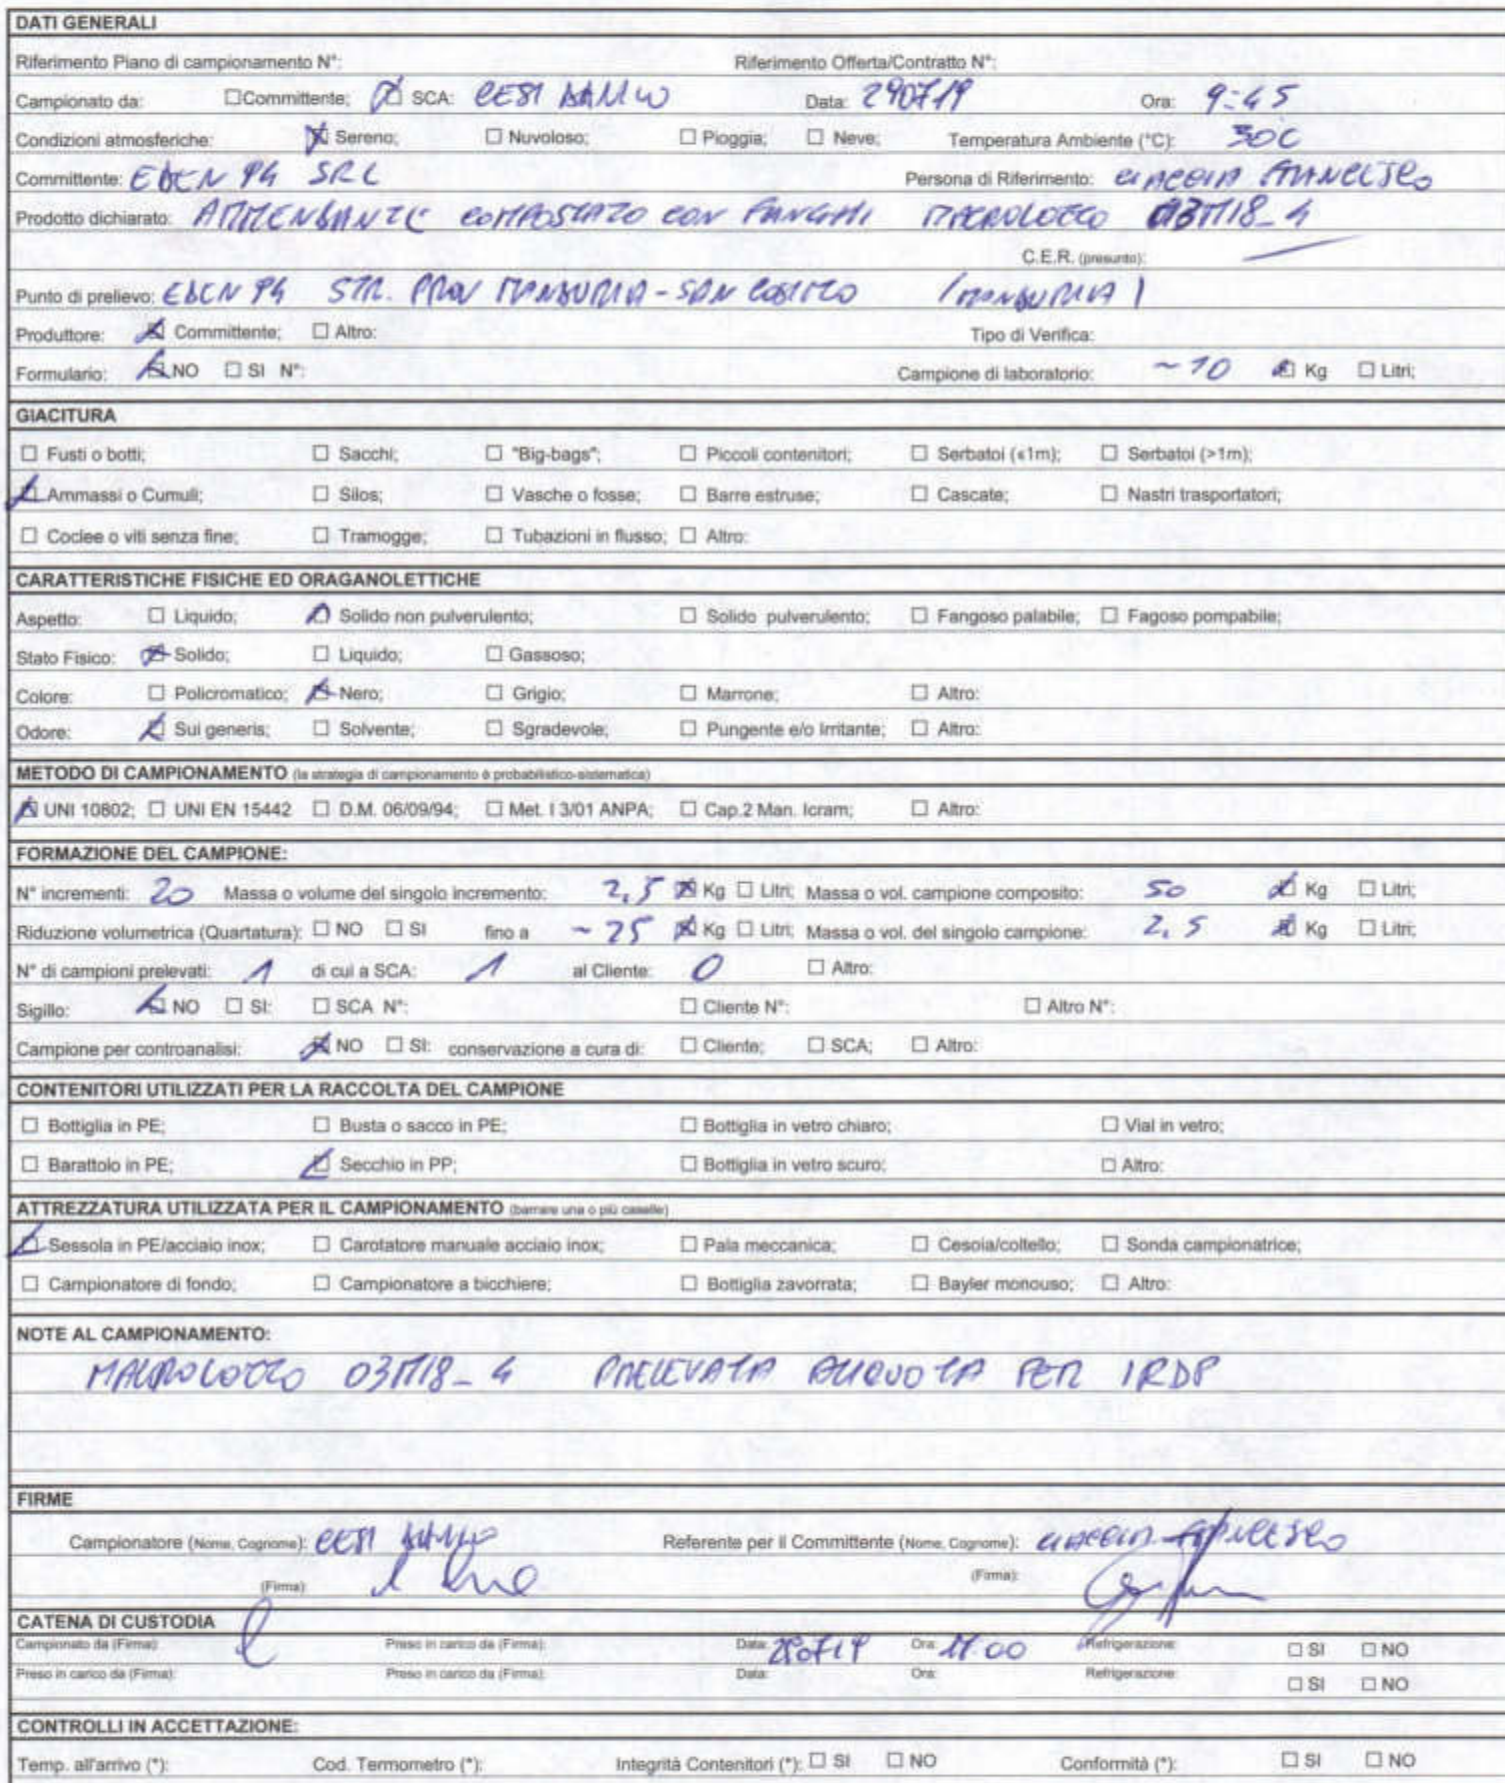 DATI GENERALI
Riferimento Piano di campionamento N°: Riferimento Offerta/Contratto N°:
Campionato da: ☐Committente; ☒ SCA: CESI Data: 290719 Ora: 9:45
Condizioni atmosferiche: ☒ Sereno; ☐ Nuvoloso; ☐ Pioggia; ☐ Neve; Temperatura Ambiente (°C): 30C
Committente: EDEN 94 SRL Persona di Riferimento: CIACCIA FRANCESCO
Prodotto dichiarato: AMMENDANTE COMPOSTATO CON FANGHI MACROLOTTO 03M18_4
C.E.R. (presunto):
Punto di prelievo: EDEN 94 STR. PROV MANDURIA-SAN COSIMO (MANDURIA)
Produttore: ☒ Committente; ☐ Altro: Tipo di Verifica:
Formulario: ☒ NO ☐ SI N°: Campione di laboratorio: ~10 ☒ Kg ☐ Litri;
GIACITURA
☐ Fusti o botti; ☐ Sacchi; ☐ "Big-bags"; ☐ Piccoli contenitori; ☐ Serbatoi (≤1m); ☐ Serbatoi (>1m);
☒ Ammassi o Cumuli; ☐ Silos; ☐ Vasche o fosse; ☐ Barre estruse; ☐ Cascate; ☐ Nastri trasportatori;
☐ Coclee o viti senza fine; ☐ Tramogge; ☐ Tubazioni in flusso; ☐ Altro:
CARATTERISTICHE FISICHE ED ORAGANOLETTICHE
Aspetto: ☐ Liquido; ☒ Solido non pulverulento; ☐ Solido pulverulento; ☐ Fangoso palabile; ☐ Fagoso pompabile;
Stato Fisico: ☒ Solido; ☐ Liquido; ☐ Gassoso;
Colore: ☐ Policromatico; ☒ Nero; ☐ Grigio; ☐ Marrone; ☐ Altro:
Odore: ☒ Sui generis; ☐ Solvente; ☐ Sgradevole; ☐ Pungente e/o Irritante; ☐ Altro:
METODO DI CAMPIONAMENTO (la strategia di campionamento è probabilistico-sistematica)
☒ UNI 10802; ☐ UNI EN 15442 ☐ D.M. 06/09/94; ☐ Met. I 3/01 ANPA; ☐ Cap.2 Man. Icram; ☐ Altro:
FORMAZIONE DEL CAMPIONE:
N° incrementi: 20 Massa o volume del singolo incremento: 2,5 ☒ Kg ☐ Litri; Massa o vol. campione composito: 50 ☒ Kg ☐ Litri;
Riduzione volumetrica (Quartatura): ☐ NO ☐ SI fino a ~25 ☒ Kg ☐ Litri; Massa o vol. del singolo campione: 2,5 ☒ Kg ☐ Litri;
N° di campioni prelevati: 1 di cui a SCA: 1 al Cliente: 0 ☐ Altro:
Sigillo: ☒ NO ☐ SI: ☐ SCA N°: ☐ Cliente N°: ☐ Altro N°:
Campione per controanalisi: ☒ NO ☐ SI: conservazione a cura di: ☐ Cliente; ☐ SCA; ☐ Altro:
CONTENITORI UTILIZZATI PER LA RACCOLTA DEL CAMPIONE
☐ Bottiglia in PE; ☐ Busta o sacco in PE; ☐ Bottiglia in vetro chiaro; ☐ Vial in vetro;
☐ Barattolo in PE; ☒ Secchio in PP; ☐ Bottiglia in vetro scuro; ☐ Altro:
ATTREZZATURA UTILIZZATA PER IL CAMPIONAMENTO (barrare una o più caselle)
☒ Sessola in PE/acciaio inox; ☐ Carotatore manuale acciaio inox; ☐ Pala meccanica; ☐ Cesoia/coltello; ☐ Sonda campionatrice;
☐ Campionatore di fondo; ☐ Campionatore a bicchiere; ☐ Bottiglia zavorrata; ☐ Bayler monouso; ☐ Altro:
NOTE AL CAMPIONAMENTO:
MACROLOTTO 03M18_4 PRELEVATA ALIQUOTA PER IRDP
FIRME
Campionatore (Nome, Cognome): CESI Referente per il Committente (Nome, Cognome): CIACCIA FRANCESCO
(Firma): (Firma):
CATENA DI CUSTODIA
Campionato da (Firma): Preso in carico da (Firma): Data: 290719 Ora: 17:00 Refrigerazione: ☐ SI ☐ NO
Preso in carico da (Firma): Preso in carico da (Firma): Data: Ora: Refrigerazione: ☐ SI ☐ NO
CONTROLLI IN ACCETTAZIONE:
Temp. all'arrivo (*): Cod. Termometro (*): Integrità Contenitori (*): ☐ SI ☐ NO Conformità (*): ☐ SI ☐ NO